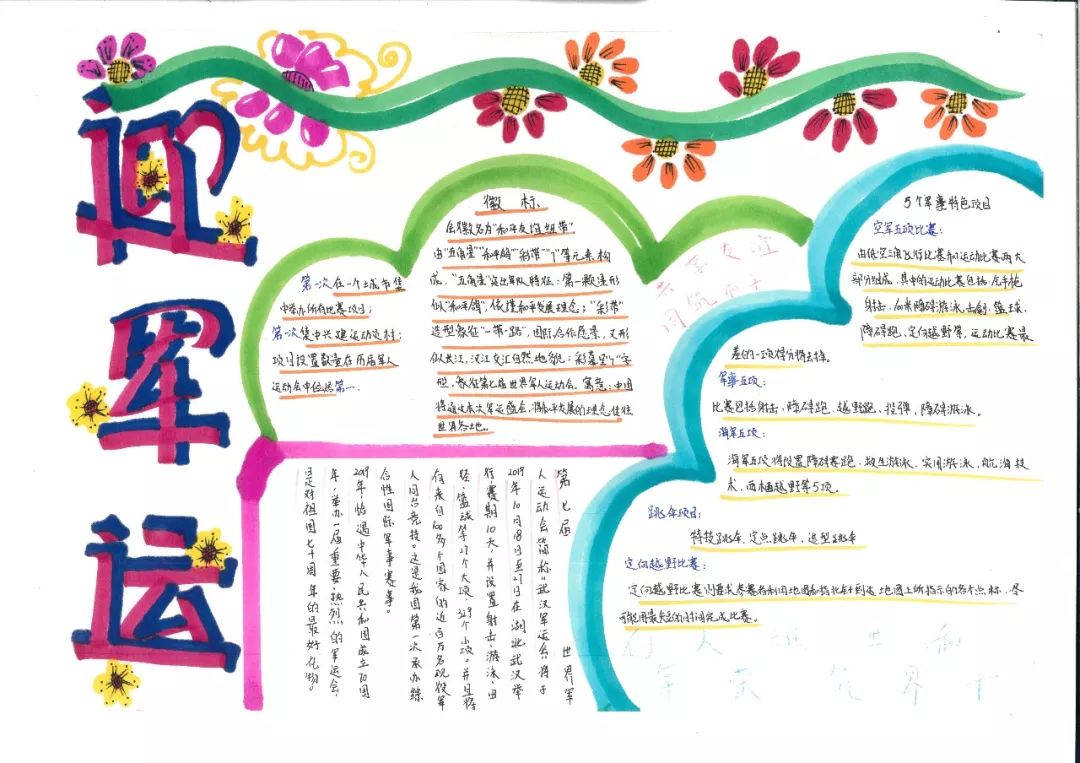 迎军运
徽标
会徽名为“和平友谊纽带”
由“五角星”“和平鸽”“彩带”“7”等元素构
成。“五角星”突出军队特征；第一颗造形
似“和平鸽”，依撑和平发展理念；“彩带”
造型象征“一带一路”，国际合作愿景，又形
似长江、汉江交汇自然地貌；彩幕呈“7”字
型，象征第七届世界军人运动会。寓意：中国
将通过本次军运盛会，将和平发展的理念传独
世界各地。
第一次在一个城市集
中举办所有比赛项目；
第一次集中兴建运动员村；
项目设置数量在历届军人
运动会中位居第一.
友谊
共筑和平
第七届世界军
人运动会（简称“武汉军运会”）将于
2019年10月18日至27日在湖北武汉举
行，赛期10天，并设置射击、游泳、田
径、篮球等27个大项、329个小项。并且将
有来自100多个国家的近万名现役军
人同台竞技。这是我国第一次承办综
合性国际军事赛事。
2019年，恰遇中华人民共和国成立70周
年，举办一届重要、热烈的军运会，
是对祖国七十周年的最好礼物。
5个军事特色项目
空军五项比赛：
由低空三项飞行比赛和运动比赛两大
部分组成。其中的运动比赛包括气手枪
射击、100米障碍游泳、击剑、篮球、
障碍跑、定向越野等，运动比赛最
差的一项得分将去掉。
军事五项：
比赛包括射击、障碍跑、越野跑、投弹、障碍游泳。
海军五项：
海军五项将设置障碍赛跑、救生游泳、实用游泳、航海技
术、两栖越野等5项。
跳伞项目：
特技跳伞、定点跳伞、造型跳伞
定向越野比赛：
定向越野比赛则要求参赛者利用地图和指北针到访地图上所指示的各个点标，尽
可能用最短的时间完成比赛。